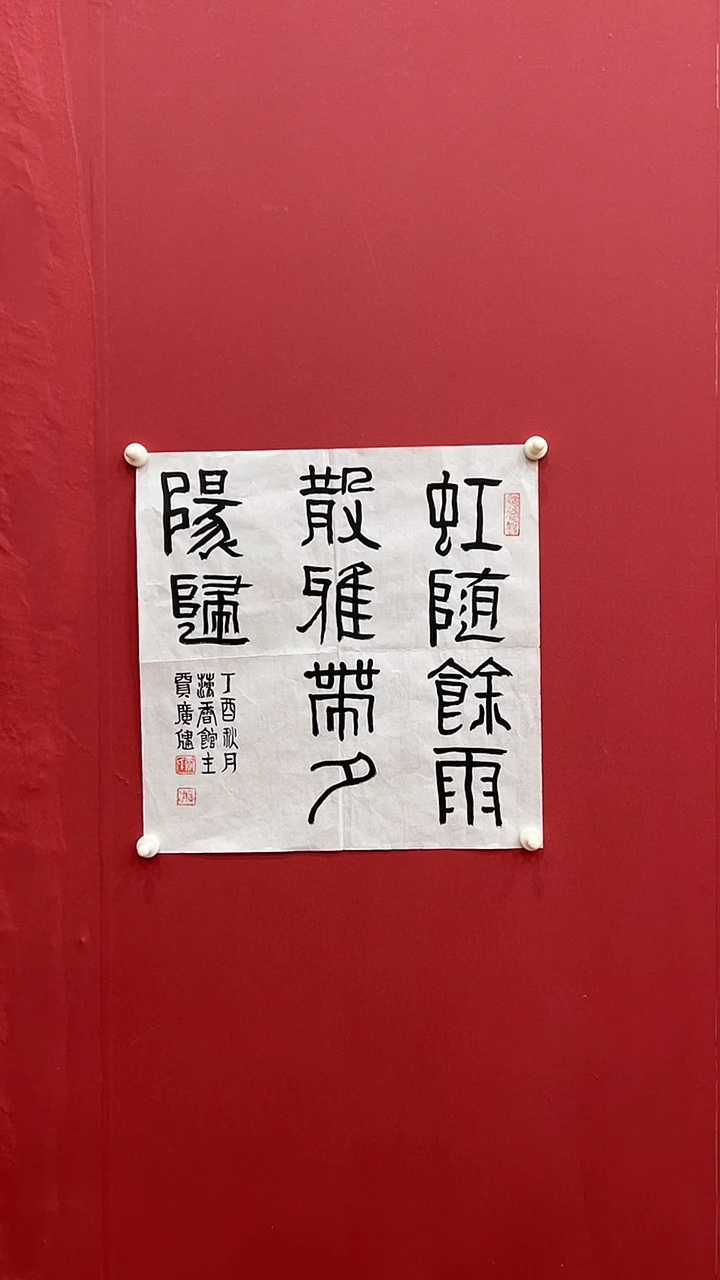 虹随餘雨
散雅帶夕
陽歸
丁酉秋月
蔬香館主
賈廣健